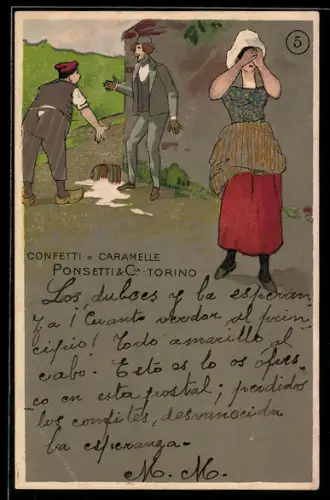 5
CONFETTI e CARAMELLE
PONSETTI & Cᴬ - TORINO
Los dulces y la esperan
za! Cuanto verdor al prin
cipio! Todo amarillo al
cabo. Esto es lo os ofrez
co en esta postal; perdidos
los confites, desvanecida
la esperanza-
M. M.